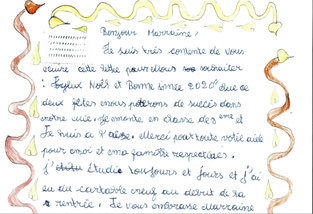 Bonjour Marraine,
Je suis très contente de vous
ecrire cette lettre pour vous souhaiter
: Joyeux Noël et Bonne année 2020 que ce
deux fêtes nous portons de succès dans
notre vie. Je monte en classe des ème et
Je suis à l'aise. Merci pour toute votre aide
pour moi et ma famille respectives.
J' étudie toujours et jours et J'ai
eu du cartable neuf au début de la
rentrée. Je vous embrasse Marraine